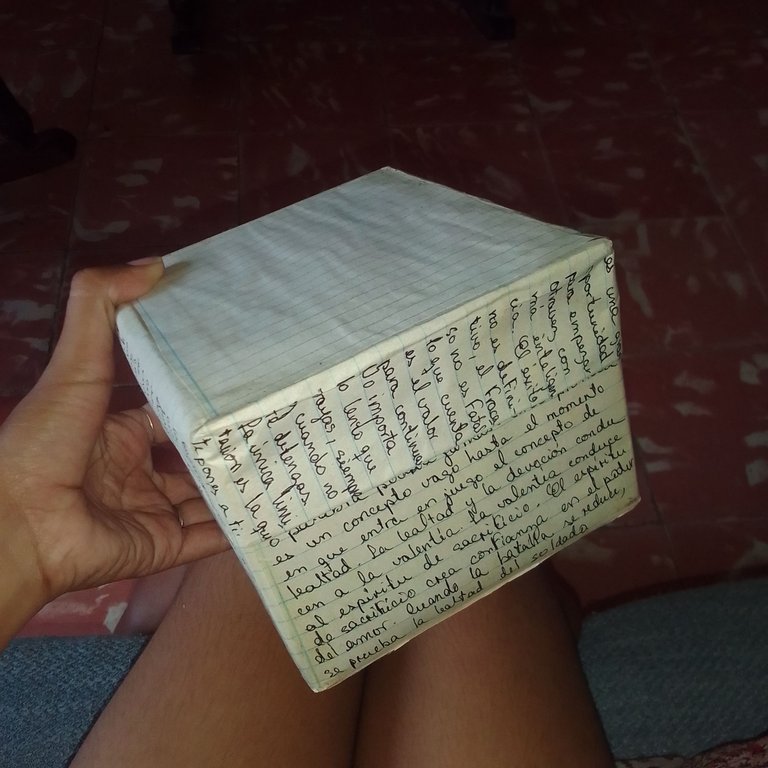 es una
oportunidad
para empezar
otravez, con
más inteligen
cia. El éxito
no es defini
tivo, el fraca
so no es fatal:
lo que cuenta
es el valor
para continuar
No importa
lo lento que
vayas, siempre
y cuando no
te detengas
La única limi
tación es la que
te pones a ti.
es un concepto vago hasta el momento
en que entra en juego el concepto de
lealtad. La lealtad y la devoción condu
cen a la valentía. La valentía conduce
al espíritu de sacrificio. El espíritu
de sacrificio crea confianza en el poder
del amor. Cuando la batalla se reduce,
se prueba la lealtad del soldado